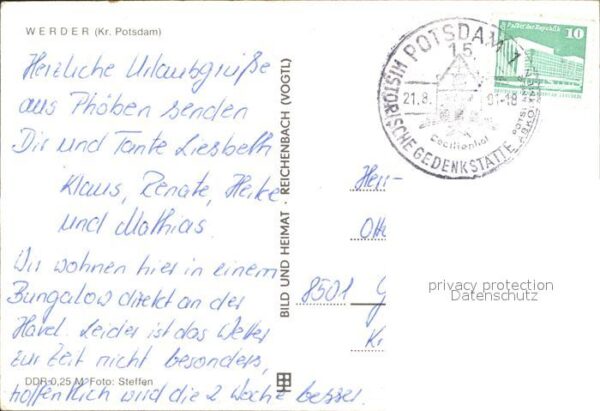 WERDER (Kr. Potsdam)
Herzliche Urlaubsgrüße
aus Phöben senden
Dir und Tante Liesbeth
Klaus, Renate, Heike
und Mathias.
Wir wohnen hier in einem
Bungalow direkt an der
Havel. Leider ist das Wetter
zur Zeit nicht besonders,
hoffentlich wird die 2. Woche besser.
DDR 0,25 M Foto: Steffen
BILD UND HEIMAT · REICHENBACH (VOGTL)
POTSDAM 1
15
21.8.
-18
Cecilienhof
HISTORISCHE GEDENKSTÄTTE
POTSD. ABKO
Palast der Republik
10
Herr
8501
privacy protection
Datenschutz